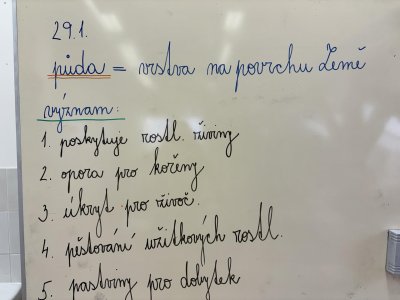 29.1.
půda = vrstva na povrchu Země
význam:
1. poskytuje rostl. živiny
2. opora pro kořeny
3. úkryt pro živoč.
4. pěstování užitkových rostl.
5. pastviny pro dobytek